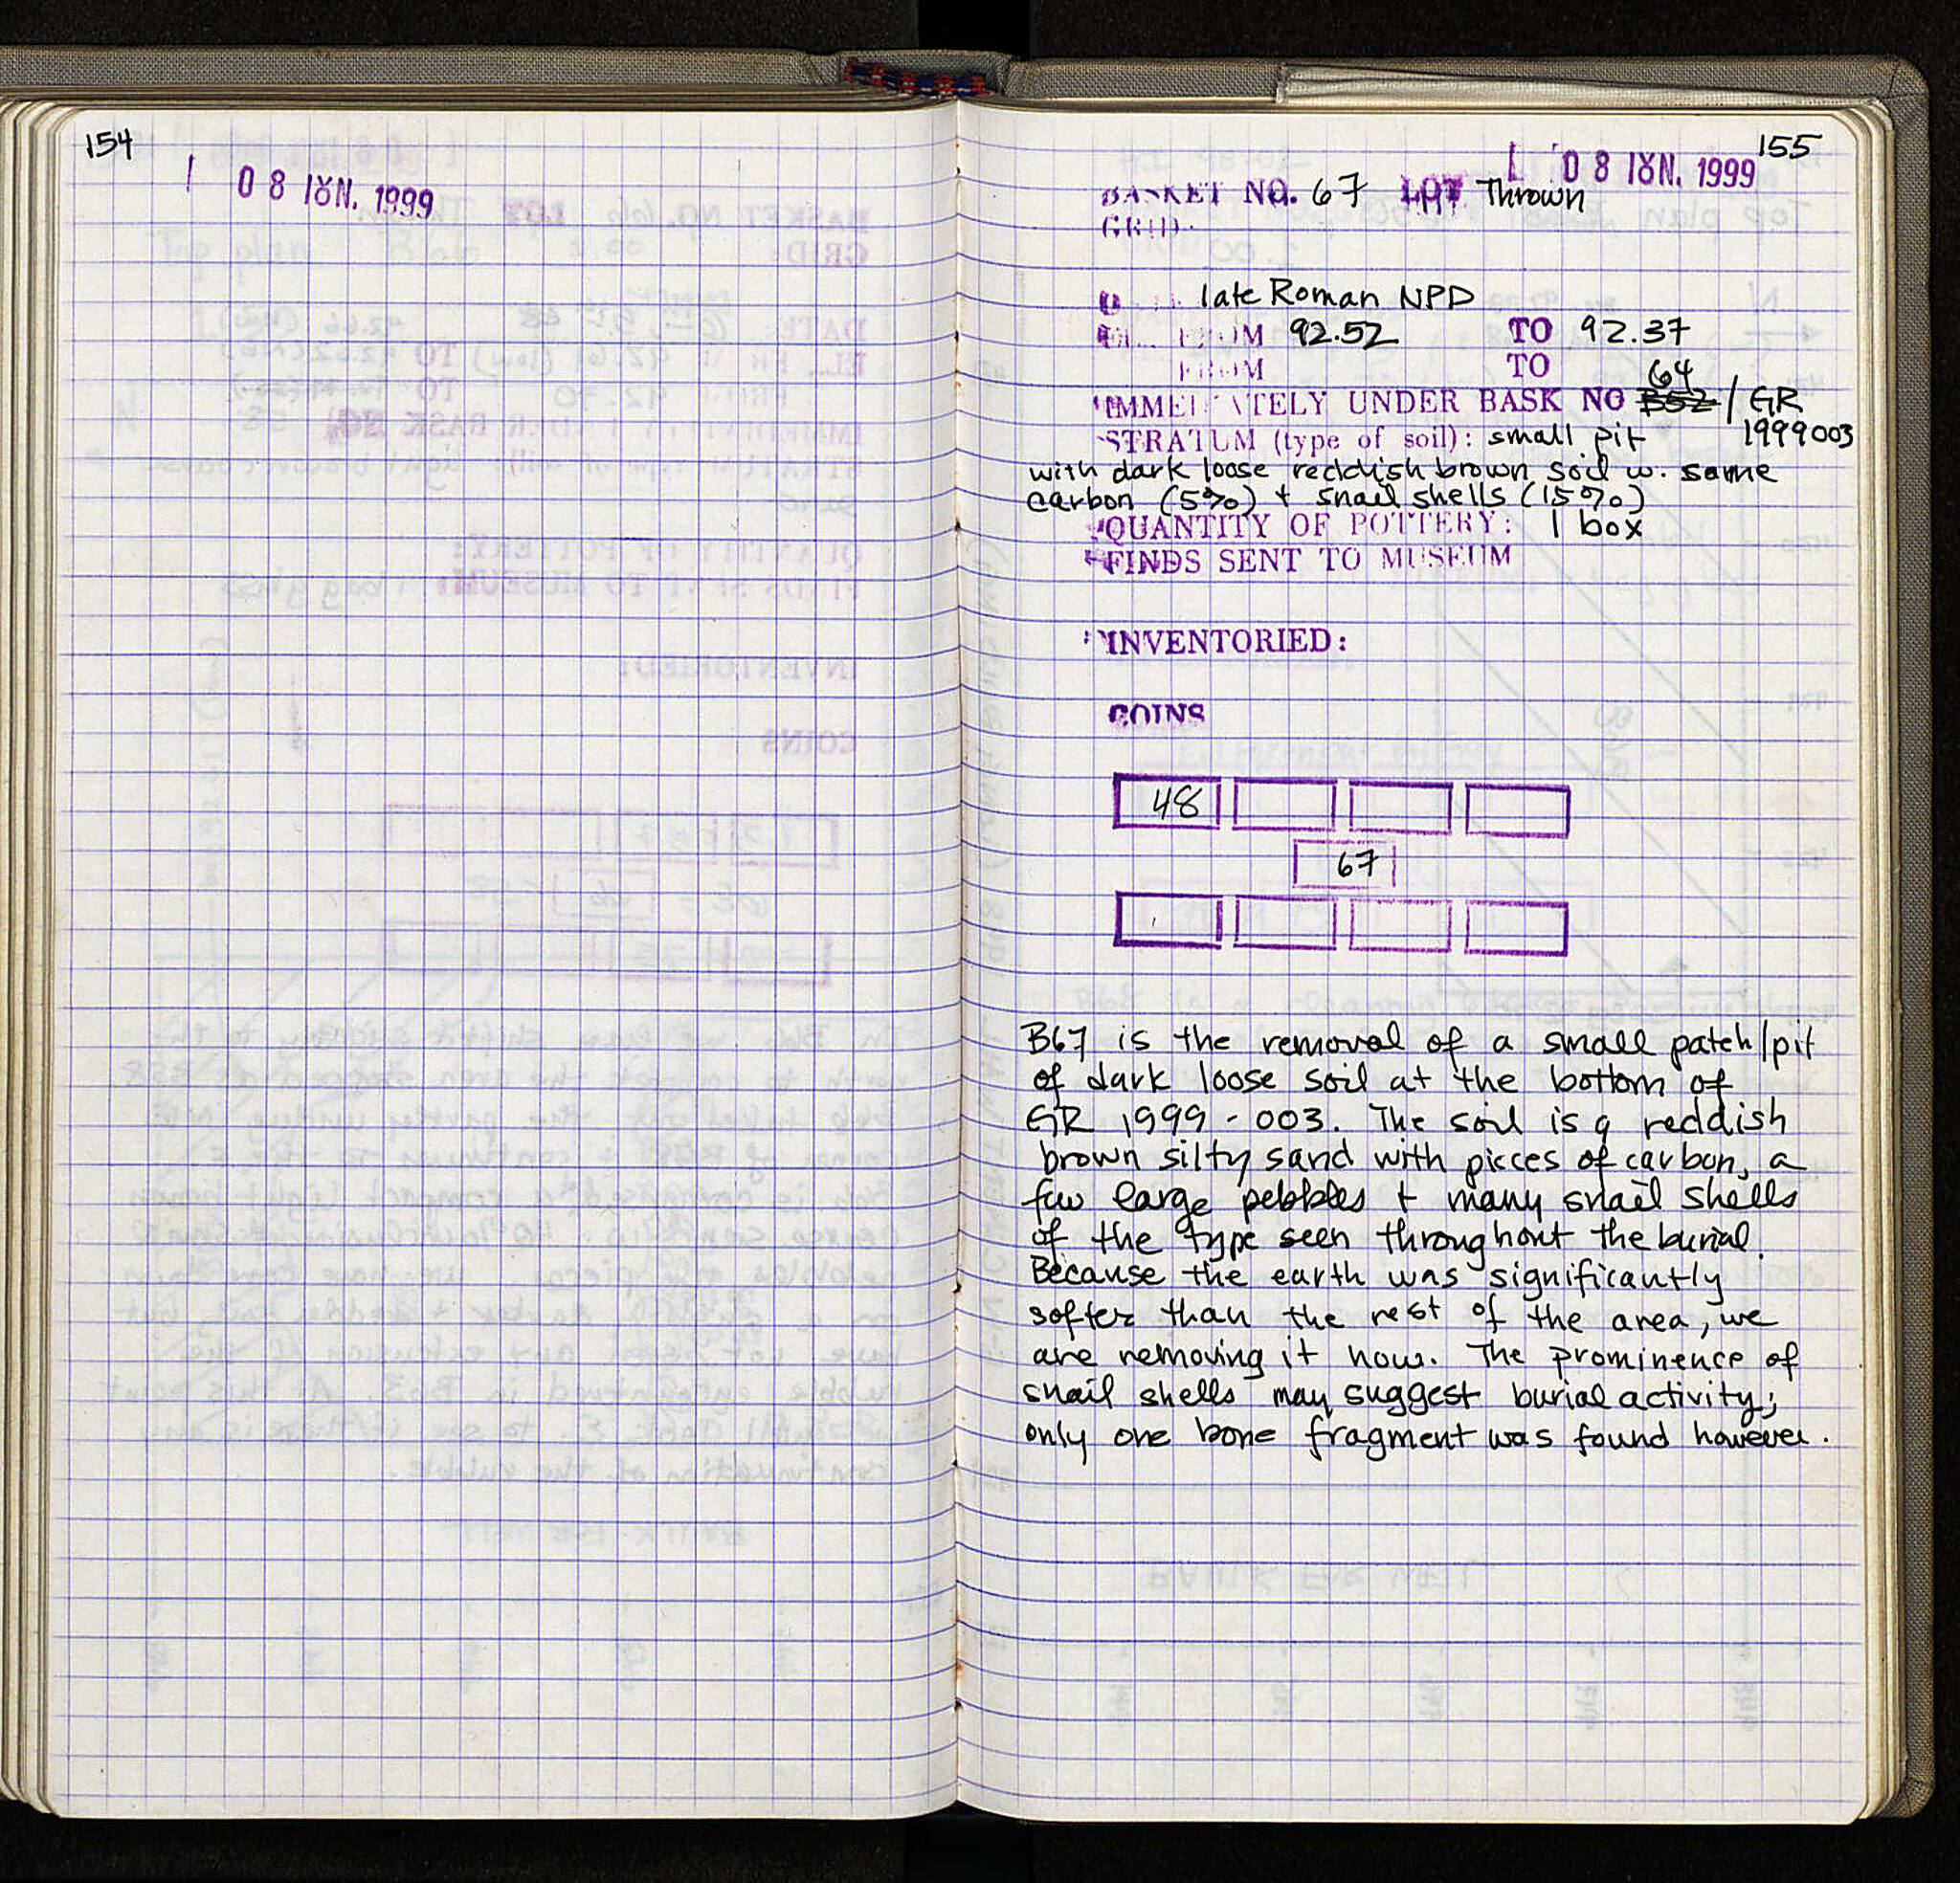 154
08 ΙΟΥΝ. 1999
155
08 ΙΟΥΝ. 1999
BASKET NO. 67 LOT Thrown
GRID:
late Roman NPD
EL. FROM 92.52 TO 92.37
FROM TO
64
IMMEDIATELY UNDER BASK NO B52 / GR
1999003
STRATUM (type of soil): small pit
with dark loose reddish brown soil w. some
carbon (5%) + snail shells (15%)
QUANTITY OF POTTERY: 1 box
FINDS SENT TO MUSEUM
INVENTORIED:
COINS
48
67
B67 is the removal of a small patch/pit
of dark loose soil at the bottom of
GR 1999-003. The soil is a reddish
brown silty sand with pieces of carbon, a
few large pebbles + many snail shells
of the type seen throughout the burial.
Because the earth was significantly
softer than the rest of the area, we
are removing it now. The prominence of
snail shells may suggest burial activity;
only one bone fragment was found however.